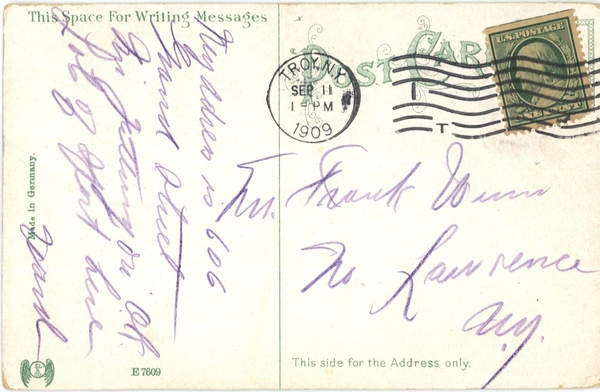 This Space For Writing Messages
My address is 606
Grand Street
Am getting on OK
Lots of sport here
Made In Germany.
E 7609
POST CARD
TROY, N.Y.
SEP 11
1 - PM
1909
U.S. POSTAGE
CENT
Frank
No. Lawrence
N.Y.
This side for the Address only.